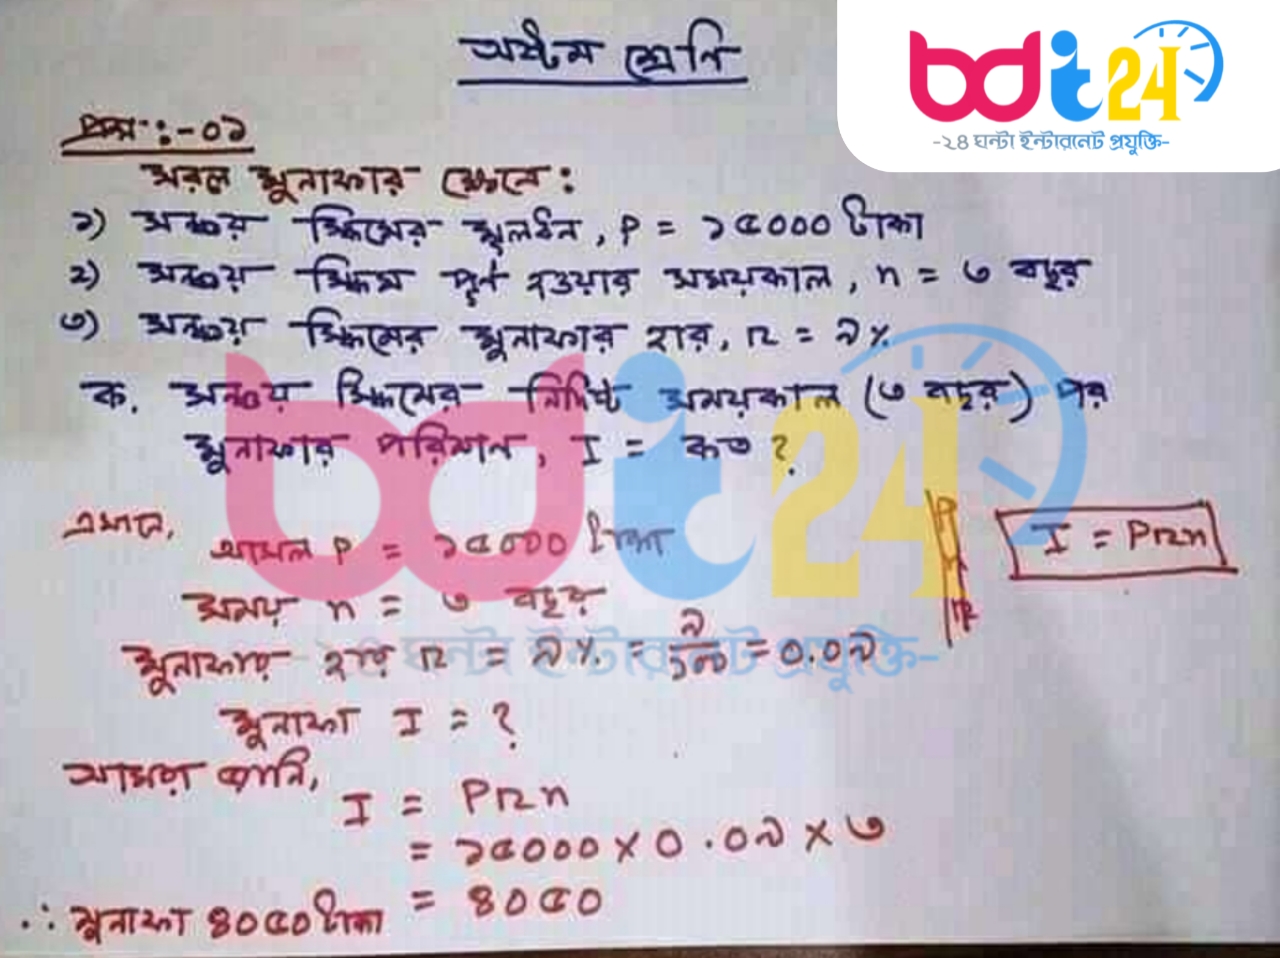 অষ্টম শ্রেণি
bdit24
-২৪ ঘন্টা ইন্টারনেট প্রযুক্তি-
প্রশ্ন :- ০১
সরল মুনাফার ক্ষেত্রে :
১) সঞ্চয় স্কিমের মূলধন, P = ১৫০০০ টাকা
২) সঞ্চয় স্কিম পূর্ণ হওয়ার সময়কাল, n = ৩ বছর
৩) সঞ্চয় স্কিমের মুনাফার হার, r = ৯%
ক. সঞ্চয় স্কিমের নির্দিষ্ট সময়কাল (৩ বছর) পর
মুনাফার পরিমান, I = কত ?
এখানে,
আসল P = ১৫০০০ টাকা
I = Prn
সময় n = ৩ বছর
মুনাফার হার r = ৯% = ৯/১০০ = ০.০৯
মুনাফা I = ?
আমরা জানি,
I = Prn
= ১৫০০০ × ০.০৯ × ৩
= ৪০৫০
∴ মুনাফা ৪০৫০ টাকা
bdit24
-২৪ ঘন্টা ইন্টারনেট প্রযুক্তি-